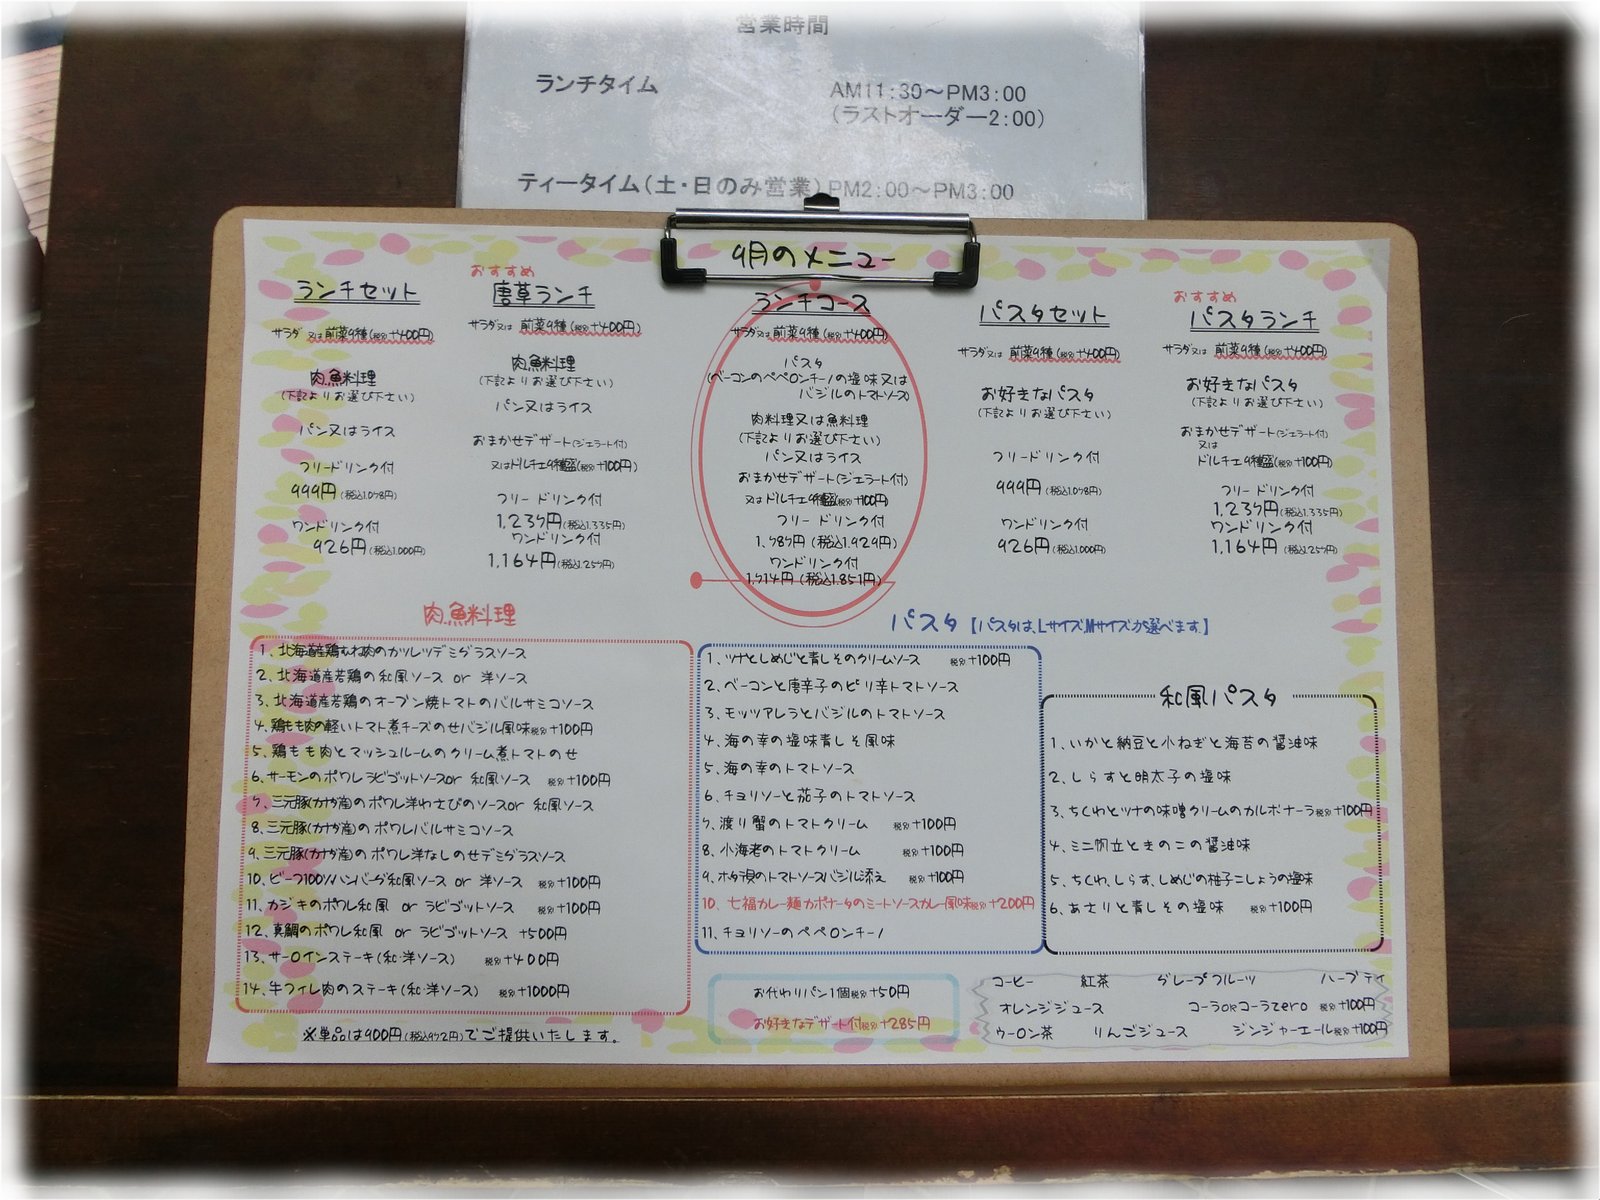 営業時間
ランチタイム AM11:30～PM3:00
(ラストオーダー2:00)
ティータイム(土・日のみ営業) PM2:00～PM3:00
9月のメニュー
ランチセット
サラダ 又は 前菜9種(税別+400円)
肉.魚料理
(下記よりお選び下さい)
パン又はライス
フリードリンク付
999円(税込1.078円)
ワンドリンク付
926円(税込1.000円)
おすすめ
唐草ランチ
サラダ又は 前菜9種(税別+400円)
肉.魚料理
(下記よりお選び下さい)
パン又はライス
おまかせデザート(ジェラート付)
又はドルチェ9種盛(税別+100円)
フリードリンク付
1,237円(税込1.335円)
ワンドリンク付
1,164円(税込1.257円)
ランチコース
サラダ又は前菜9種(税別+400円)
パスタ
(ベーコンのペペロンチーノの塩味又は
バジルのトマトソース)
肉料理又は魚料理
(下記よりお選び下さい)
パン又はライス
おまかせデザート(ジェラート付)
又はドルチェ9種盛(税別+100円)
フリードリンク付
1,787円(税込1.929円)
ワンドリンク付
1,714円(税込1.851円)
パスタセット
サラダ又は 前菜9種(税別+400円)
お好きなパスタ
(下記よりお選び下さい)
フリードリンク付
999円(税込1.078円)
ワンドリンク付
926円(税込1.000円)
おすすめ
パスタランチ
サラダ又は 前菜9種(税別+400円)
お好きなパスタ
(下記よりお選び下さい)
おまかせデザート(ジェラート付)
又は
ドルチェ9種盛(税別+100円)
フリードリンク付
1,237円(税込1.335円)
ワンドリンク付
1,164円(税込1.257円)
肉.魚料理
1、北海道産鶏むね肉のカツレツデミグラスソース
2、北海道産若鶏の和風ソース or 洋ソース
3、北海道産若鶏のオーブン焼トマトのバルサミコソース
4、鶏もも肉の軽いトマト煮チーズのせバジル風味税別+100円
5、鶏もも肉とマッシュルームのクリーム煮トマトのせ
6、サーモンのポワレラビゴットソースor 和風ソース 税別+100円
7、三元豚(カナダ産)のポワレ洋わさびのソースor 和風ソース
8、三元豚(カナダ産)のポワレバルサミコソース
9、三元豚(カナダ産)のポワレ洋なしのせデミグラスソース
10、ビーフ100%ハンバーグ和風ソース or 洋ソース 税別+100円
11、カジキのポワレ和風 or ラビゴットソース 税別+100円
12、真鯛のポワレ和風 or ラビゴットソース +500円
13、サーロインステーキ(和.洋ソース) 税別+400円
14、牛フィレ肉のステーキ(和.洋ソース) 税別+1000円
※単品は900円(税込972円)でご提供いたします。
パスタ【パスタは、Lサイズ.Mサイズが選べます。】
1、ツナとしめじと青しそのクリームソース 税別+100円
2、ベーコンと唐辛子のピリ辛トマトソース
3、モッツァレラとバジルのトマトソース
4、海の幸の塩味青しそ風味
5、海の幸のトマトソース
6、チョリソーと茄子のトマトソース
7、渡り蟹のトマトクリーム 税別+100円
8、小海老のトマトクリーム 税別+100円
9、ホタテ貝のトマトソースバジル添え 税別+100円
10、七福カレー麺カポナータのミートソースカレー風味税別+200円
11、チョリソーのペペロンチーノ
和風パスタ
1、いかと納豆と小ねぎと海苔の醤油味
2、しらすと明太子の塩味
3、ちくわとツナの味噌クリームのカルボナーラ税別+100円
4、ミニ帆立ときのこの醤油味
5、ちくわ、しらす、しめじの柚子こしょうの塩味
6、あさりと青しその塩味 税別+100円
お代わりパン1個税別+50円
お好きなデザート付税別+285円
コーヒー 紅茶 グレープフルーツ ハーブティ
オレンジジュース コーラorコーラzero 税別+100円
ウーロン茶 りんごジュース ジンジャーエール税別+100円